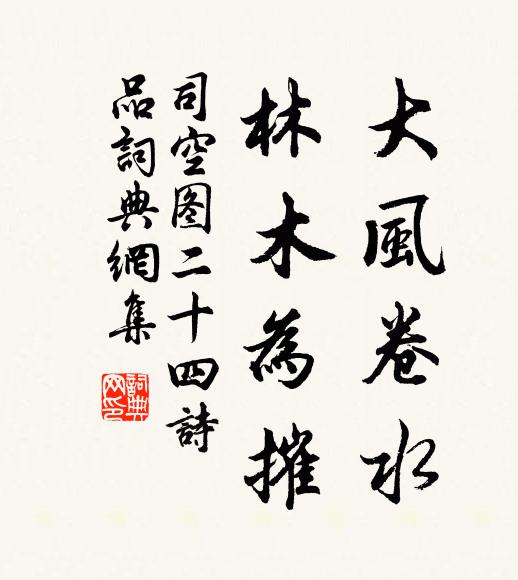 大風卷水
林木為摧
司空图二十四詩
品詞典網集
詞典网印